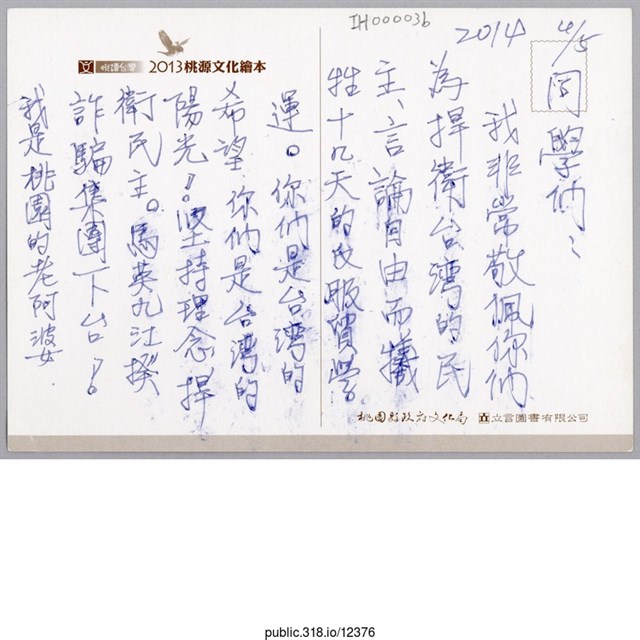 IH000036
2013桃源文化繪本
2014 4/5
同學們:
我非常敬佩你們
為捍衛台灣的民
主、言論自由而犧
牲十九天的反服貿學
運。你們是台灣的
希望、你們是台灣的
陽光!。堅持理念捍
衛民主。馬英九江揆
詐騙集團下台!。
我是桃園的老阿婆.
桃園縣政府文化局
立言圖書有限公司
public.318.io/12376